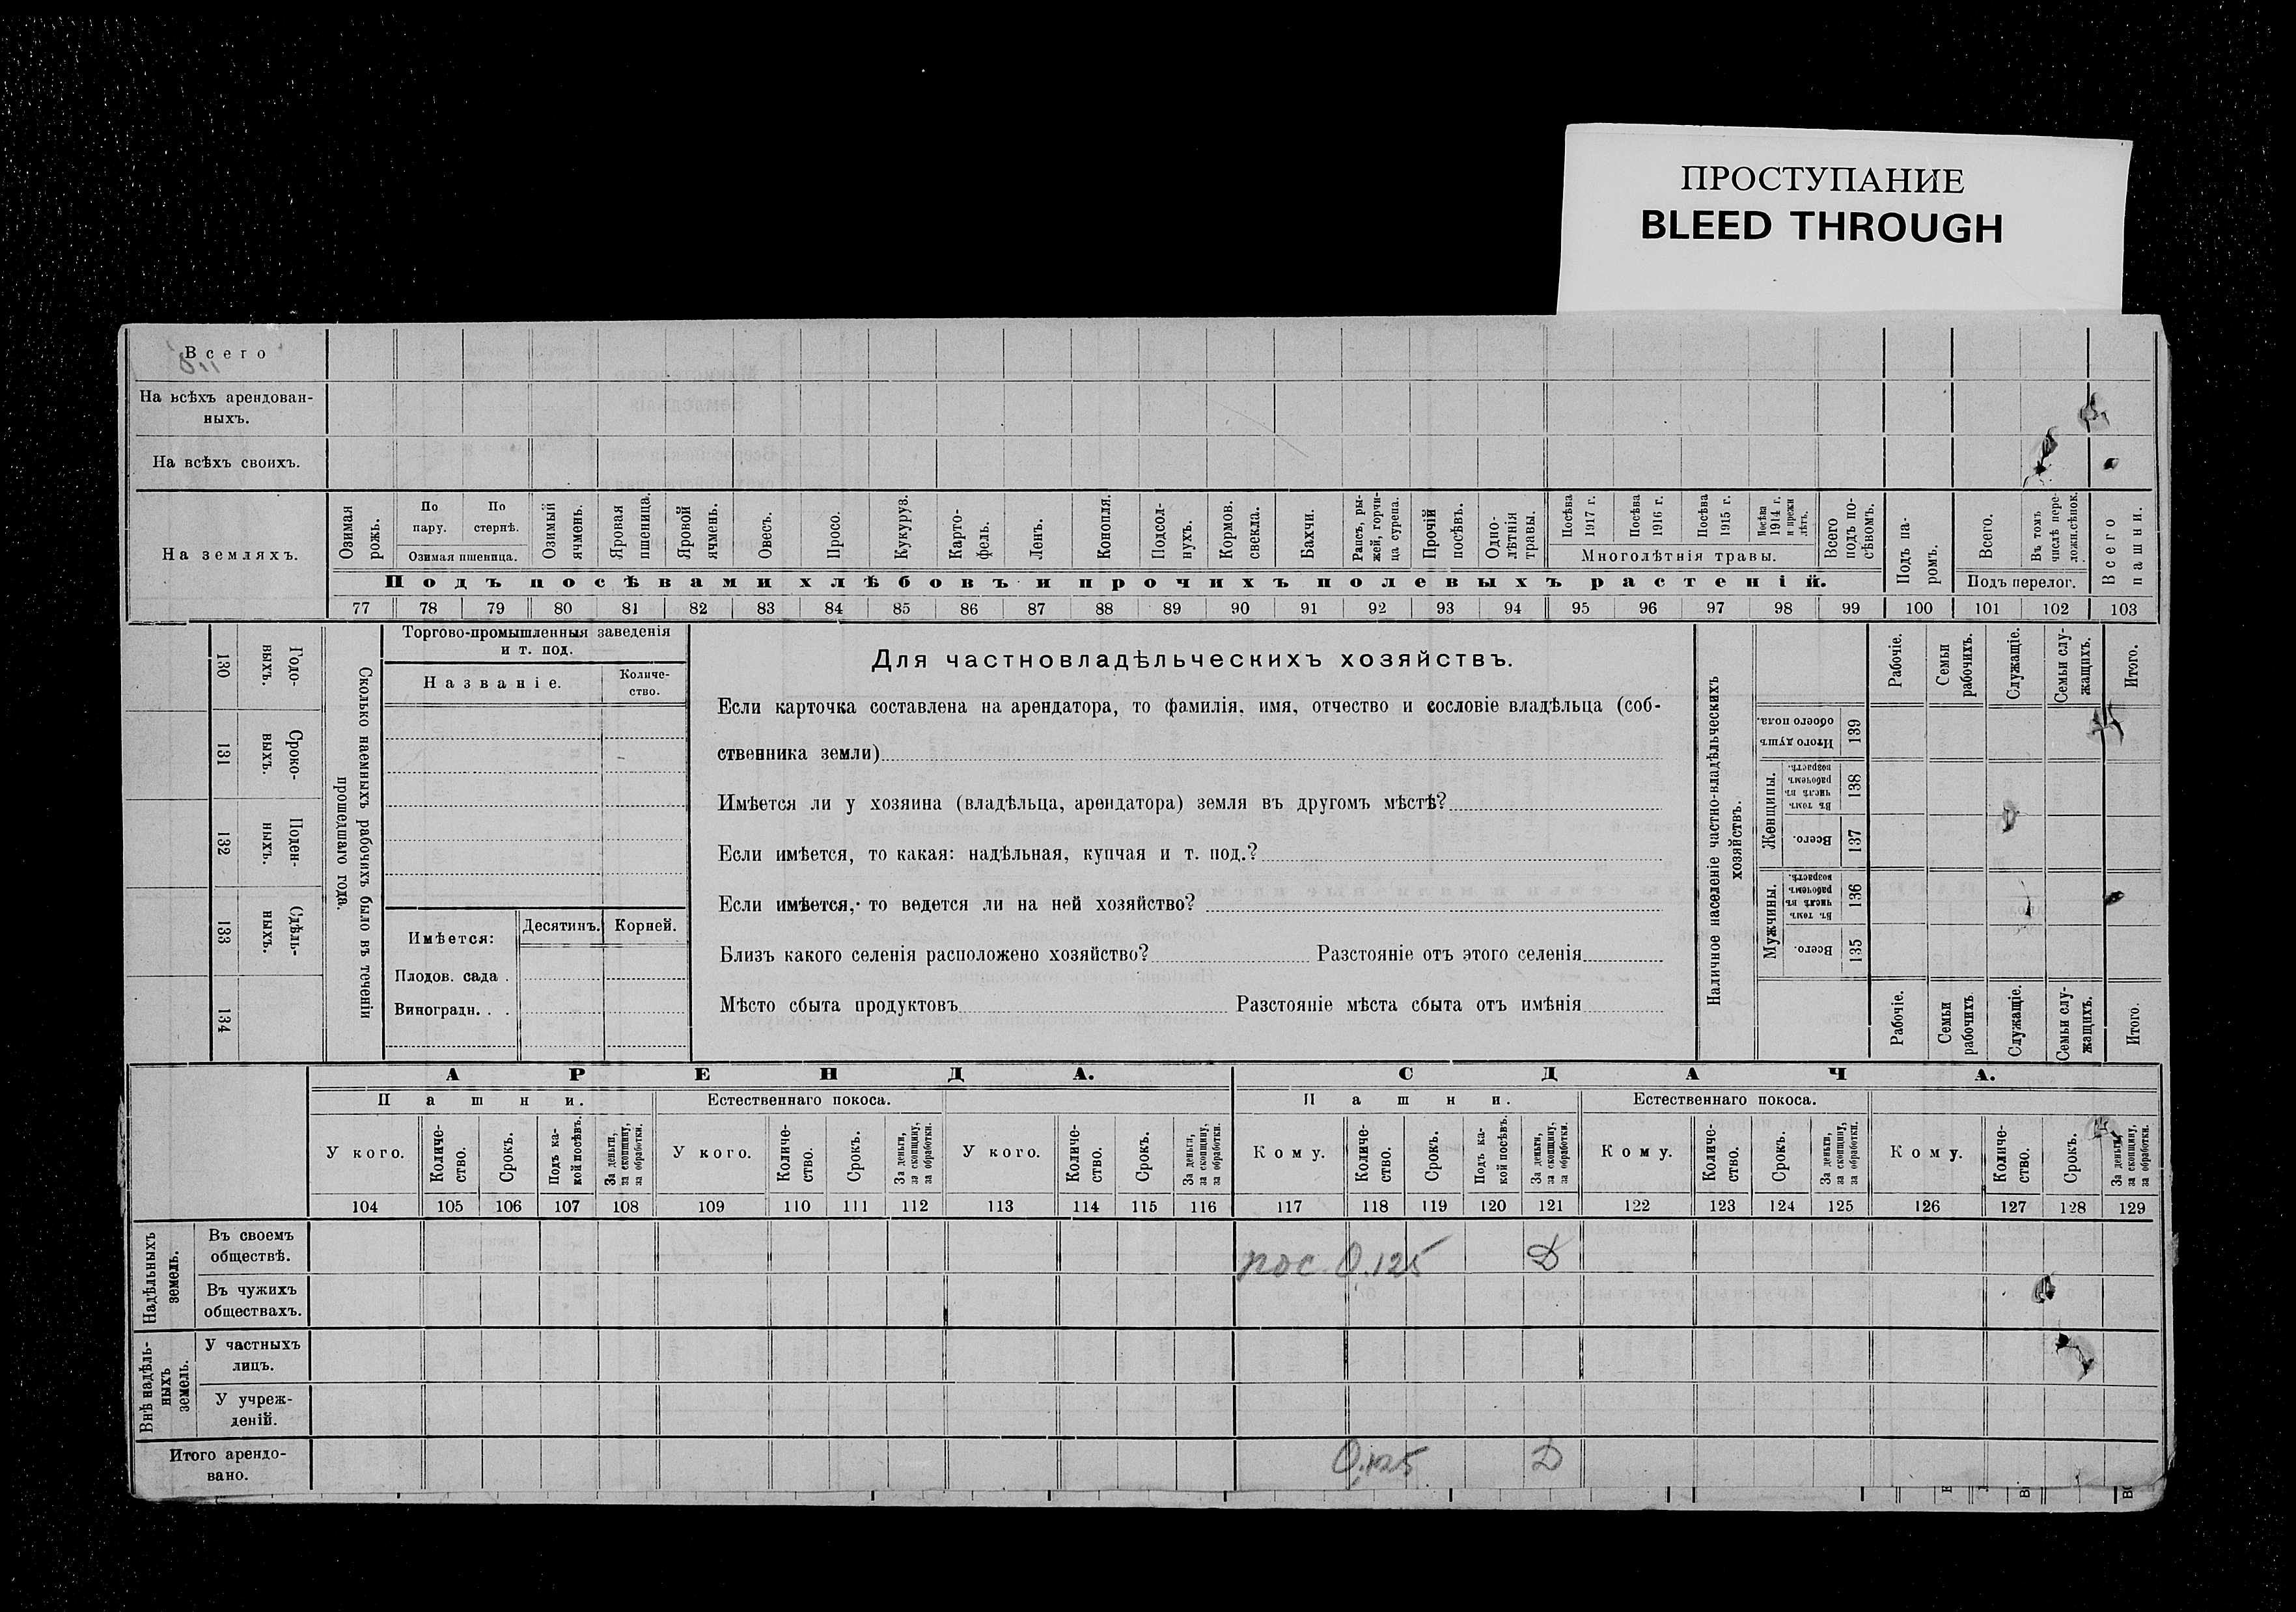 ПРОСТУПАНИЕ
BLEED THROUGH
Всего
На всѣхъ арендован-
ныхъ.
На всѣхъ своихъ.
На земляхъ.
Озимая рожь.
По пару.
По стернѣ.
Озимая пшеница.
Озимый ячмень.
Яровая пшеница.
Яровой ячмень.
Овесъ.
Просо.
Кукуруз.
Карто-
фель.
Ленъ.
Конопля.
Подсол-
нухъ.
Кормов. свекла.
Бахчи.
Рапсъ, ры-
жей, горчи-
ца сурепа.
Прочій посѣвъ.
Одно-
лѣтнія травы.
Посѣва 1917 г.
Посѣва 1916 г.
Посѣва 1915 г.
Посѣва 1914 г. и прежн лѣтъ.
Многолѣтнія травы.
Всего подъ по-
сѣвомъ.
Подъ па-
ромъ.
Всего.
Въ томъ числѣ пере-
ложн.сѣнок.
Подъ перелог.
Всего пашни.
Подъ посѣвами хлѣбовъ и прочихъ полевыхъ растеній.
77 78 79 80 81 82 83 84 85 86 87 88 89 90 91 92 93 94 95 96 97 98 99 100 101 102 103
130
Годо-
выхъ.
131
Сроко-
выхъ.
132
Поден-
ныхъ.
133
Сдѣль-
ныхъ.
134
Сколько наемныхъ рабочихъ было въ теченіи
прошедшаго года.
Торгово-промышленныя заведенія
и т. под.
Названіе.
Количе-
ство.
Имѣется:
Десятинъ.
Корней.
Плодов. сада .
Виноградн. . .
Для частновладѣльческихъ хозяйствъ.
Если карточка составлена на арендатора, то фамилія, имя, отчество и сословіе владѣльца (соб-
ственника земли)
Имѣется ли у хозяина (владѣльца, арендатора) земля въ другомъ мѣстѣ?
Если имѣется, то какая: надѣльная, купчая и т. под.?
Если имѣется, то ведется ли на ней хозяйство?
Близъ какого селенія расположено хозяйство? Разстояніе отъ этого селенія
Мѣсто сбыта продуктовъ Разстояніе мѣста сбыта отъ имѣнія
Наличное населеніе частно-владѣльческихъ
хозяйствъ.
Рабочіе.
Семьи рабочихъ.
Служащіе.
Семьи слу-
жащихъ.
Итого.
Итого душъ обоего пола.
139
Женщины.
Въ томъ числѣ въ рабочемъ возрастѣ.
138
Всего.
137
Мужчины.
Въ томъ числѣ въ рабочемъ возрастѣ.
136
Всего.
135
Рабочіе.
Семьи рабочихъ
Служащіе.
Семьи слу-
жащихъ.
Итого.
АРЕНДА.
СДАЧА.
Пашни.
Естественнаго покоса.
Пашни.
Естественнаго покоса.
У кого.
Количе-
ство.
Срокъ.
Подъ ка-
кой посѣвъ.
За деньги, за скопщину, за обработки.
У кого.
Количе-
ство.
Срокъ.
За деньги, за скопщину, за обработки.
У кого.
Количе-
ство.
Срокъ.
За деньги, за скопщину, за обработки.
Кому.
Количе-
ство.
Срокъ.
Подъ ка-
кой посѣвъ.
За деньги, за скопщину, за обработки.
Кому.
Количе-
ство.
Срокъ.
За деньги, за скопщину, за обработки.
Кому.
Количе-
ство.
Срокъ.
За деньги, за скопщину, за обработки.
104 105 106 107 108 109 110 111 112 113 114 115 116 117 118 119 120 121 122 123 124 125 126 127 128 129
Надѣльныхъ земель.
Въ своемъ
обществѣ.
пос. 0.125 Д
Въ чужихъ
обществахъ.
Внѣ надѣль-
ныхъ земель.
У частныхъ
лицъ.
У учреж-
деній.
Итого арендо-
вано.
0,125 Д